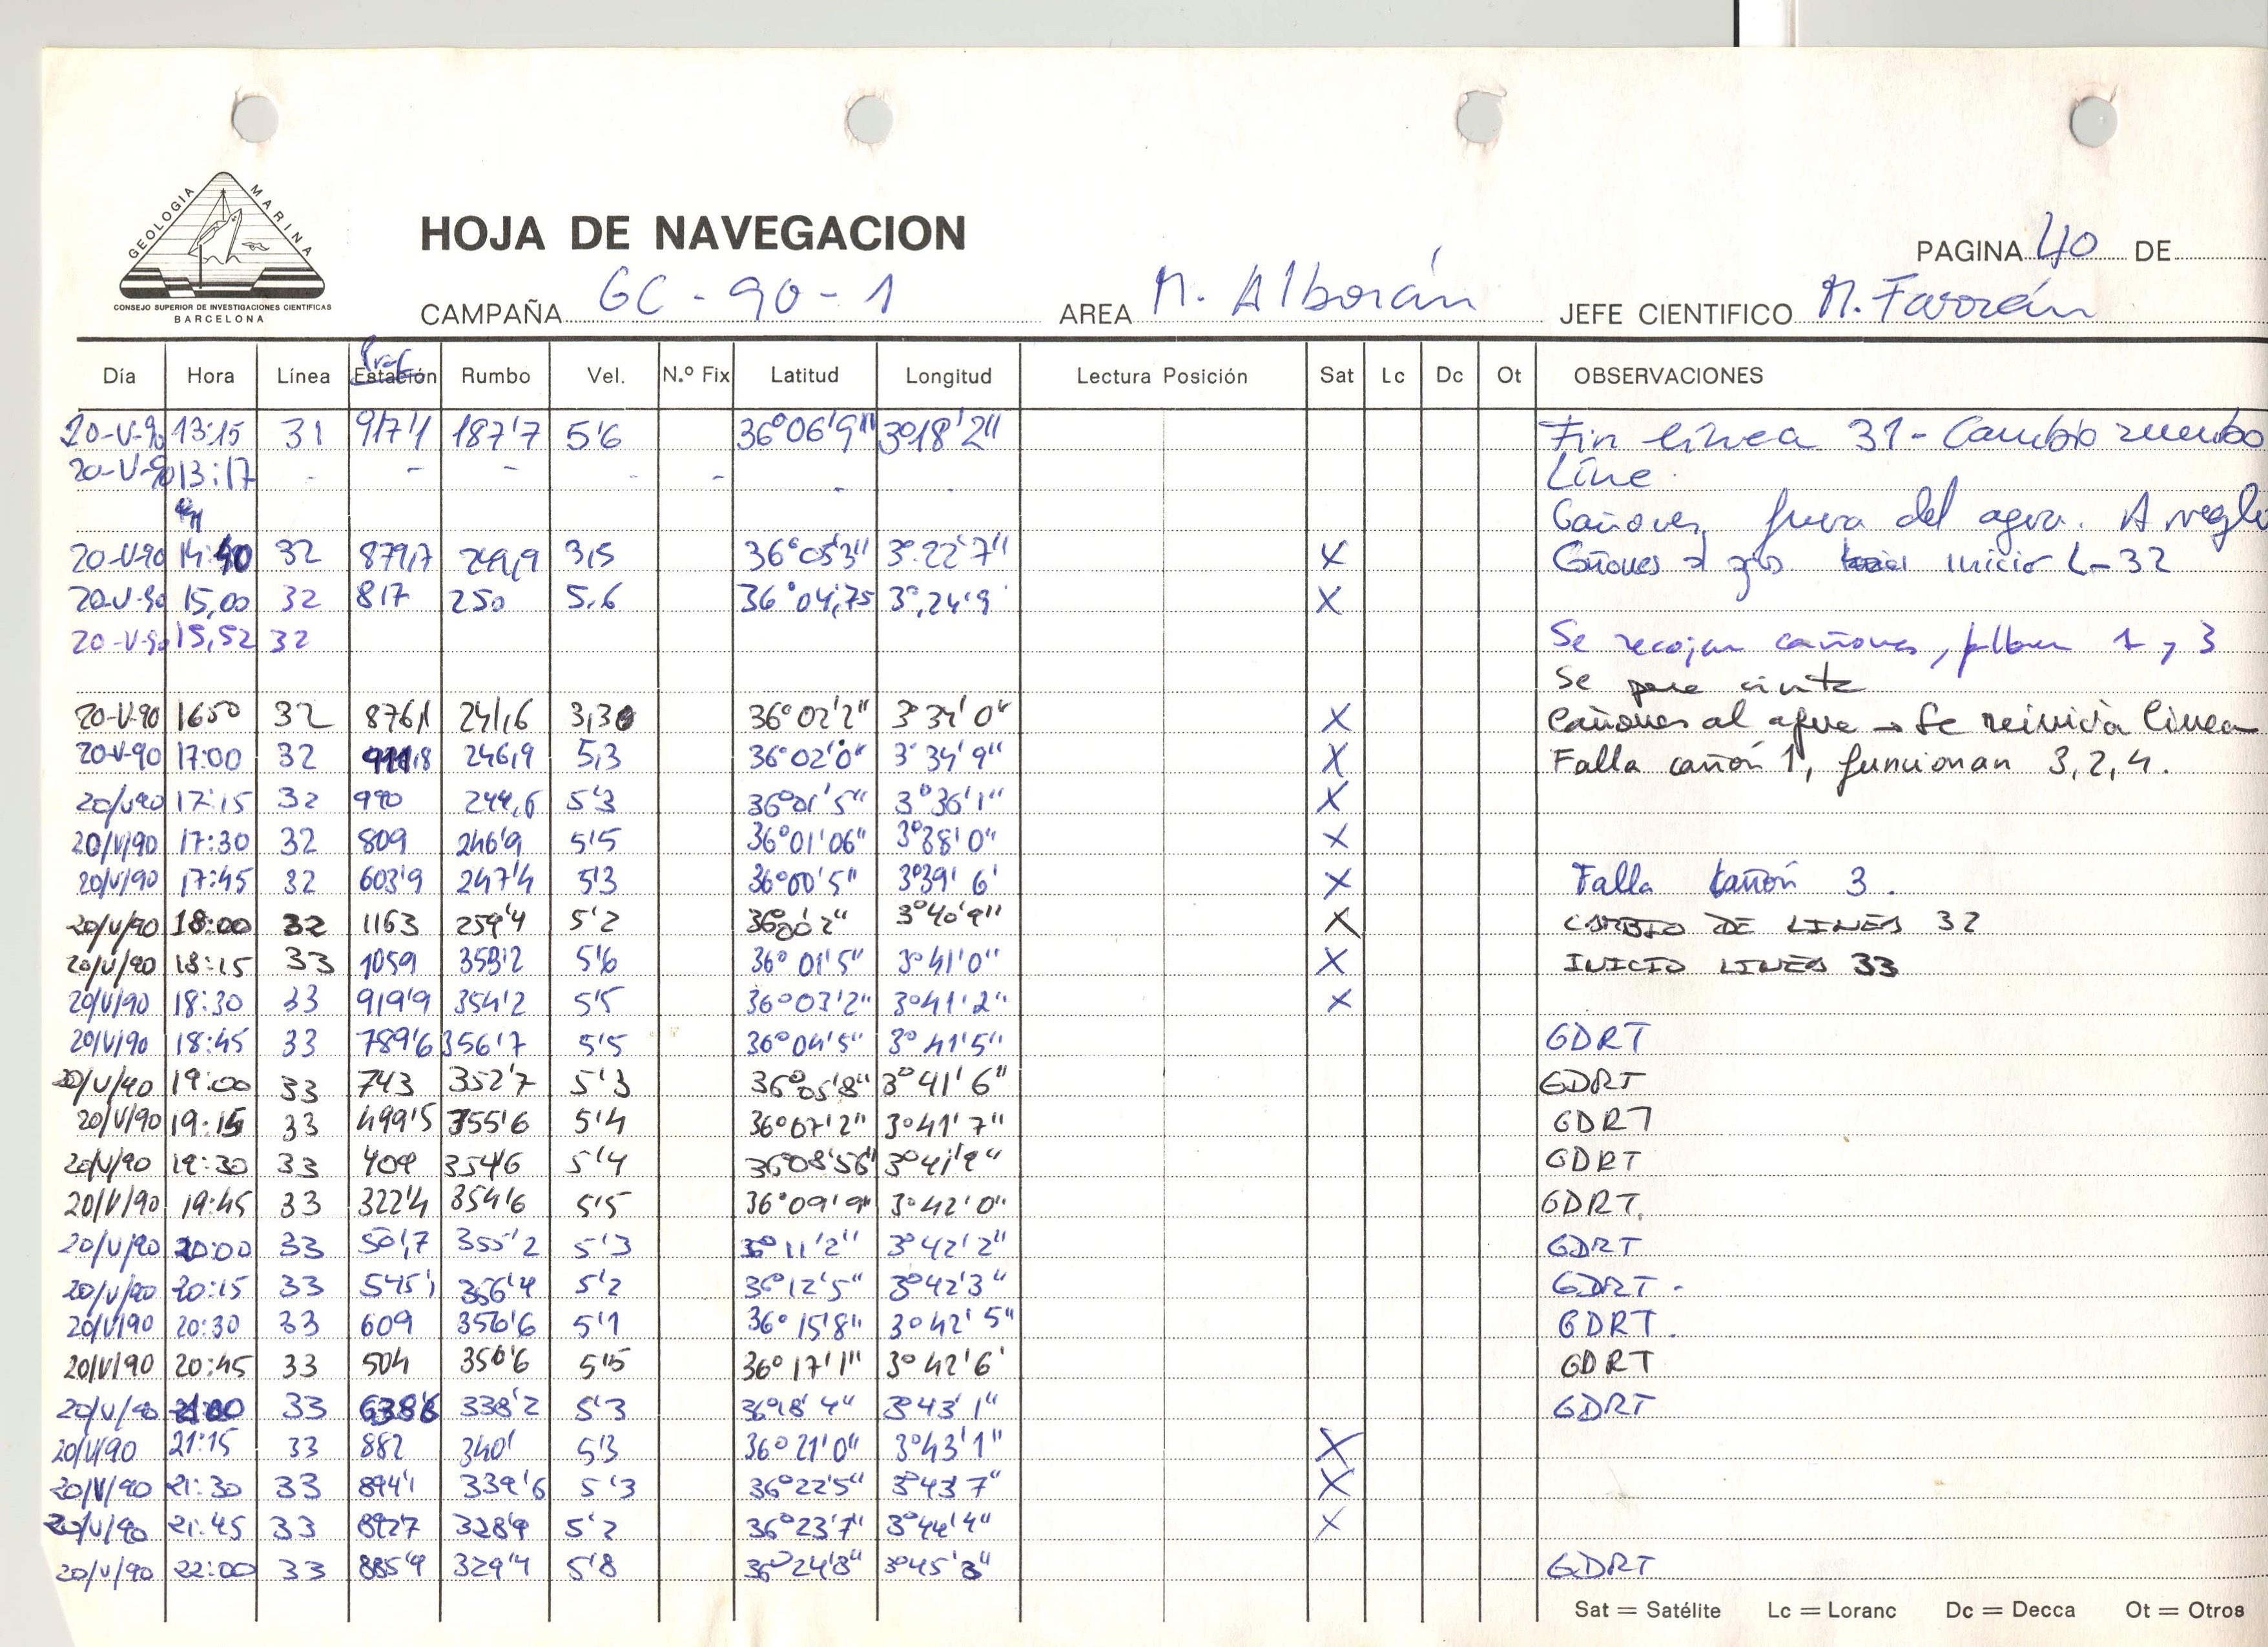 GEOLOGIA MARINA
CONSEJO SUPERIOR DE INVESTIGACIONES CIENTIFICAS
BARCELONA
HOJA DE NAVEGACION
PAGINA 40 DE
CAMPAÑA GC-90-1 AREA M. Alborán JEFE CIENTIFICO M. Farrán
Prof
Día Hora Línea Estación Rumbo Vel. N.º Fix Latitud Longitud Lectura Posición Sat Lc Dc Ot OBSERVACIONES
20-V-90 13:15 31 917'1 187'7 5'6 36°06'9" 3°18'2" Fin línea 31 - Cambio rumbo
20-V-90 13:17 - - - - - - - Line
Cañones fuera del agua. Arreglo
20-V-90 14:40 32 879,7 249,9 3,5 36°05'3" 3°22'7" X Cañones inicio L-32
20-V-90 15,00 32 817 250 5,6 36°04,75 3°,24'9 X
20-V-90 15,52 32 Se recojen cañones, 1 y 3
Se para cinta
20-V-90 1650 32 876,1 241,6 3,30 36°02'2" 3°34'0" X Cañones al agua → Se reinicia línea
20-V-90 17:00 32 246,9 5,3 36°02'0" 3°34'9" X Falla cañón 1, funcionan 3,2,4.
20/V/90 17:15 32 990 244,6 5'3 36°01'5" 3°36'1" X
20/V/90 17:30 32 809 246'9 5'5 36°01'06" 3°38'0" X
20/V/90 17:45 32 603'9 247'4 5'3 36°00'5" 3°39'6' X Falla cañón 3.
20/V/90 18:00 32 1163 259'4 5'2 36°00'2" 3°40'9" X CAMBIO DE LINEA 32
20/V/90 18:15 33 1059 353'2 5'6 36°01'5" 3°41'0" X INICIO LINEA 33
20/V/90 18:30 33 919'9 354'2 5'5 36°03'2" 3°41'2" X
20/V/90 18:45 33 789'6 356'7 5'5 36°04'5" 3°41'5" GDRT
20/V/90 19:00 33 743 352'7 5'3 36°05'8" 3°41'6" GDRT
20/V/90 19:15 33 499'5 355'6 5'4 36°07'2" 3°41'7" GDRT
20/V/90 19:30 33 409 354'6 5'4 36°08'56" 3°41'9" GDRT
20/V/90 19:45 33 322'4 354'6 5'5 36°09'9" 3°42'0" GDRT.
20/V/90 20:00 33 501,7 355'2 5'3 36°11'2" 3°42'2" GDRT
20/V/90 20:15 33 545'1 356'4 5'2 36°12'5" 3°42'3" GDRT -
20/V/90 20:30 33 609 356'6 5'1 36°15'8" 3°42'5" GDRT.
20/V/90 20:45 33 504 350'6 5'5 36°17'1" 3°42'6' GDRT
20/V/90 21:00 33 638'6 338'2 5'3 36°18'4" 3°43'1" GDRT
20/V/90 21:15 33 882 340' 5'3 36°21'0" 3°43'1" X
20/V/90 21:30 33 894'1 339'6 5'3 36°22'5" 3°43'7" X
20/V/90 21:45 33 892'7 328'9 5'2 36°23'7" 3°44'4" X
20/V/90 22:00 33 885'9 329'4 5'8 36°24'8" 3°45'3" GDRT
Sat = Satélite Lc = Loranc Dc = Decca Ot = Otros